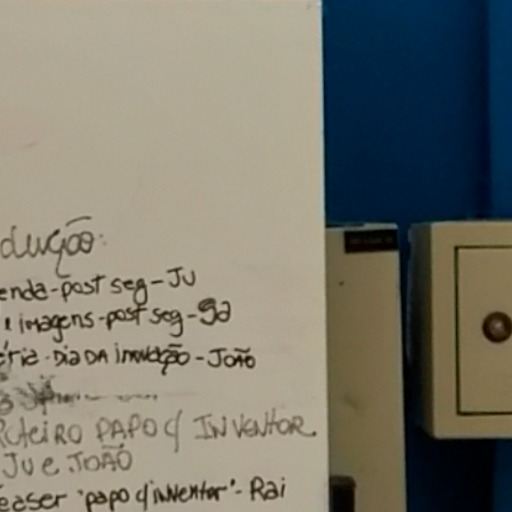 dução:
enda-post seg-JU
e imagens-post seg-Sa
éria-DIA DA inovação-JOÃO
Roteiro PAPO c/ INVENTOR
JU e JOÃO
easer "papo c/inventor"-Rai